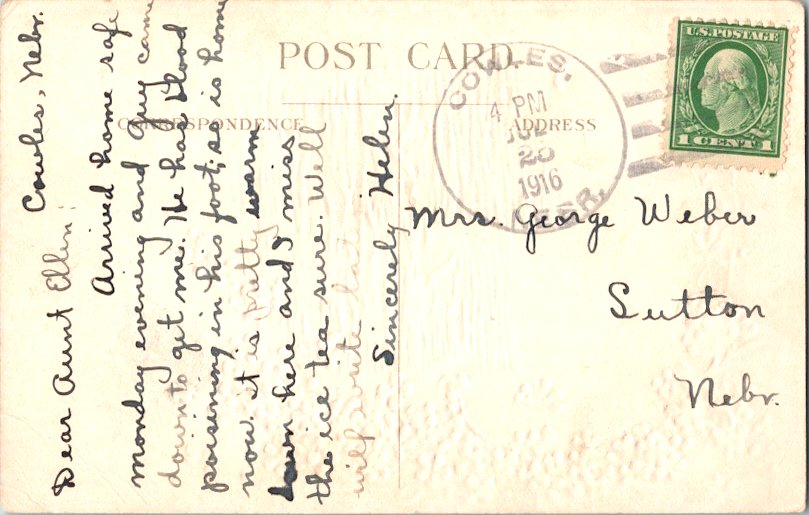 POST CARD
CORRESPONDENCE
ADDRESS
COWLES,
4 PM
JUL
20
1916
NEBR.
U.S. POSTAGE
1 CENT 1
Cowles, Nebr.
Dear Aunt Ellen:
Arrived home safe
monday evening and Guy came
down to get me. He has blood
poisoning in his foot, so is home
now. it is pretty warm
down here and I miss
the ice tea sure. Well
will write later
Sincerely Helen.
Mrs. George Weber
Sutton
Nebr.